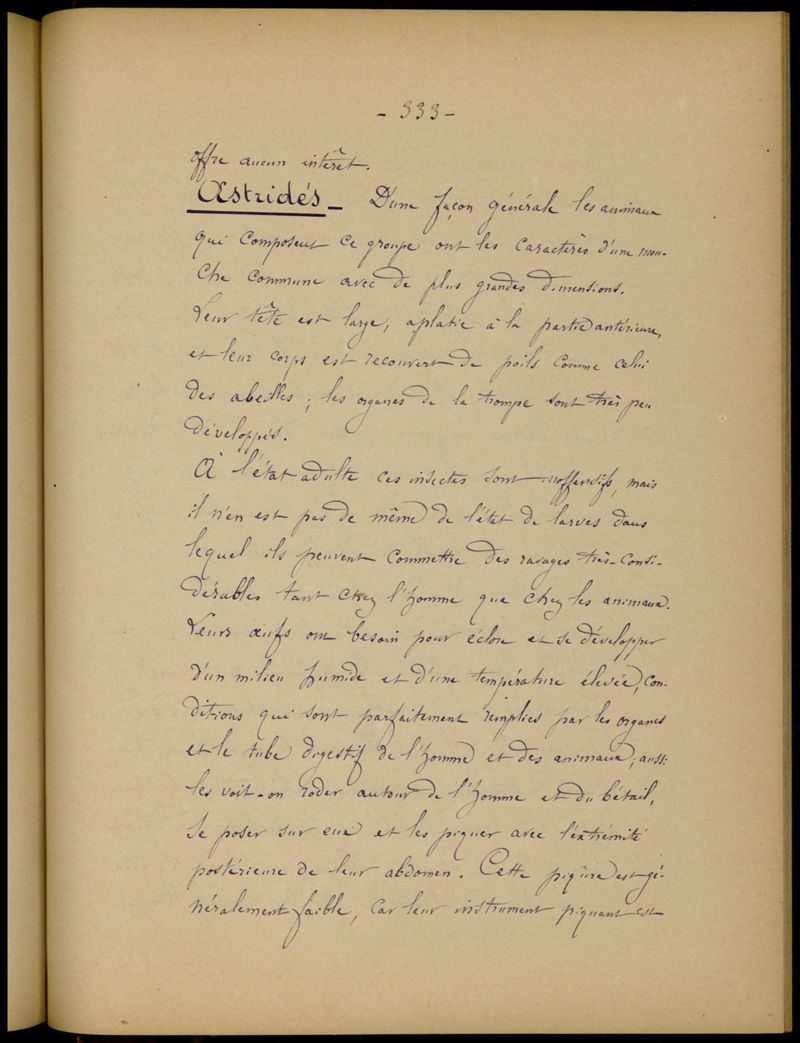 - 333 -
offre aucun intérêt.
Œstridés_ D'une façon générale les animaux
qui composent ce groupe ont les caractères d'une mou-
che commune avec de plus grandes dimensions.
Leur tête est large, aplatie à la partie antérieure,
et leur corps est recouvert de poils comme celui
des abeilles ; les organes de la trompe sont très peu
développés.
À l'état adulte ces insectes sont inoffensifs, mais
il n'en est pas de même de l'état de larves dans
lequel ils peuvent commettre des ravages très-consi-
dérables tant chez l'homme que chez les animaux.
Leurs œufs ont besoin pour éclore et se développer
d'un milieu humide et d'une température élevée, con-
ditions qui sont parfaitement remplies par les organes
et le tube digestif de l'homme et des animaux; aussi
les voit-on roder autour de l'homme et du bétail,
se poser sur eux et les piquer avec l'extrémité
postérieure de leur abdomen. Cette piqûre est gé-
néralement faible, car leur instrument piquant est